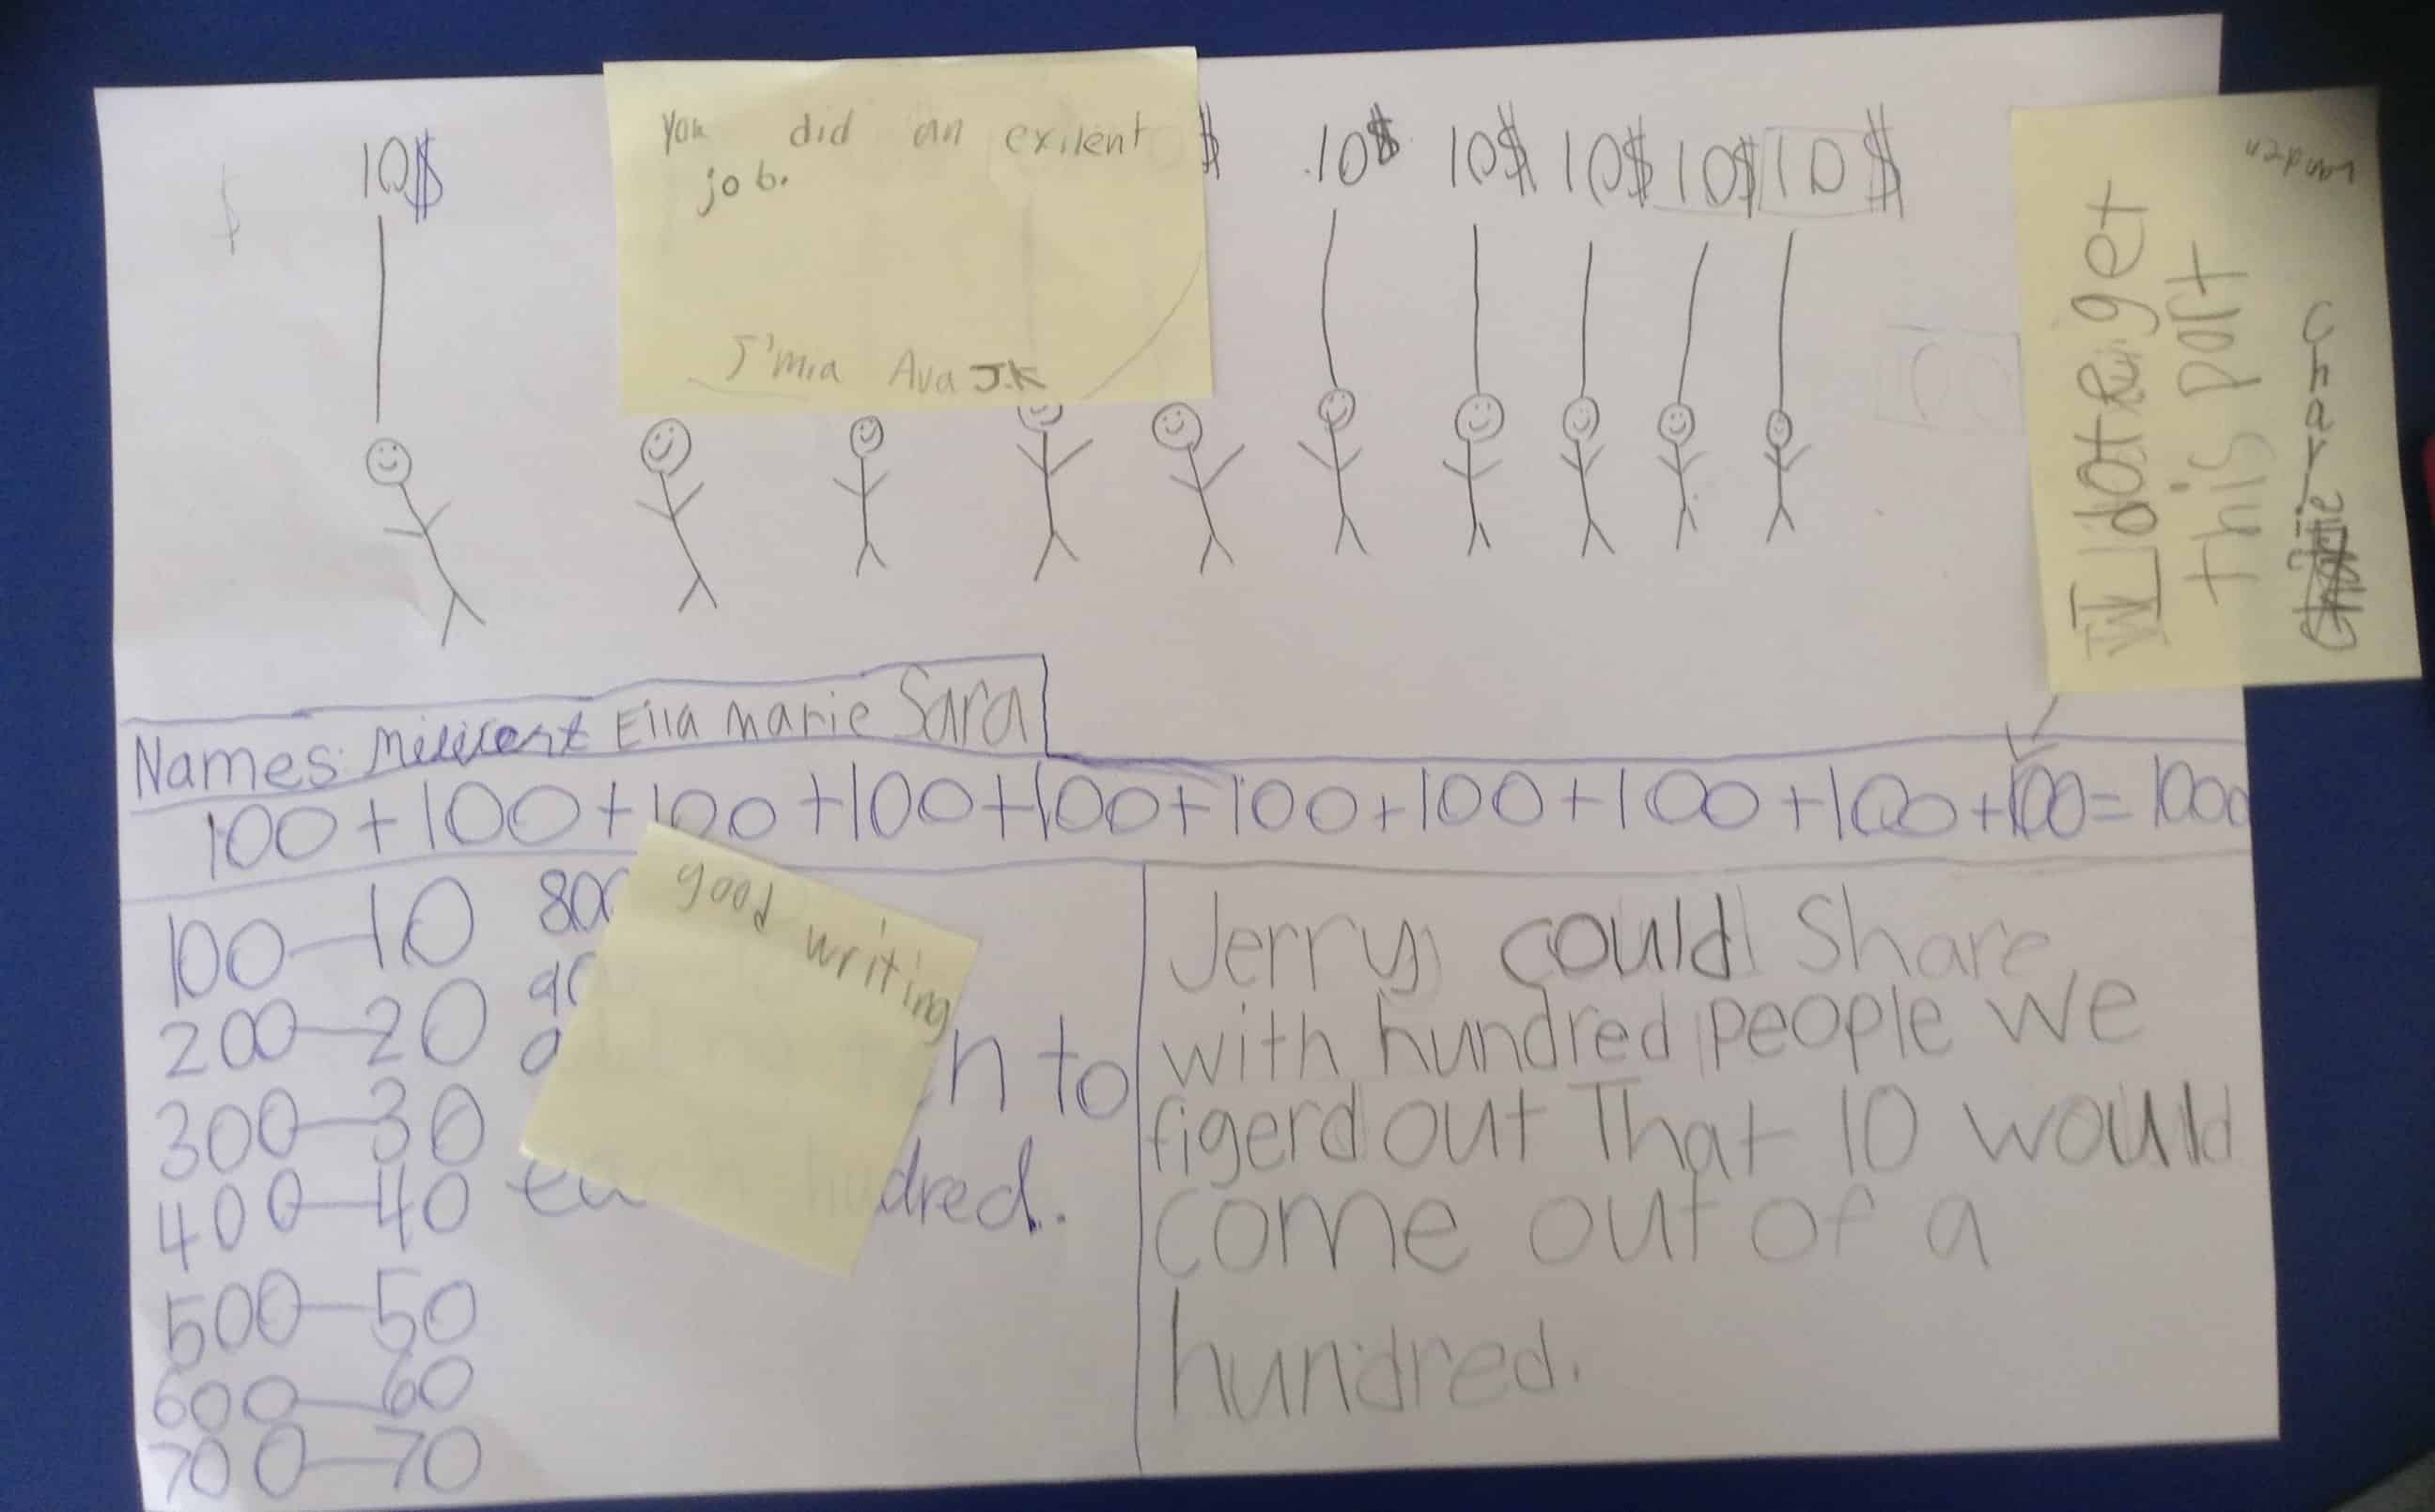 10$
You did an exilent
job.
J'mia Ava J.K
$ 10$ 10$ 10$ 10$ 10 $
get
this part
Charlie
Names: Millicent Ella marie Sara
100+100+100+100+100+100+100+100+100+100=1000
100-10
200-20
300-30
400-40
500-50
600-60
700-70
800
good writing
n to
each hudred.
Jerry could Share
with hundred people we
figerd out That 10 would
come out of a
hundred.